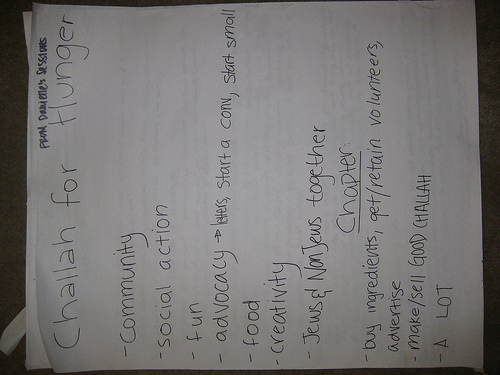 from Danielle's sessions
Challah for Hunger
- community
- social action
- fun
- advocacy → letters, start a conv, start small
- food
- creativity
- Jews & NonJews together
Chapter:
- buy ingredients, get/retain volunteers,
advertise
- make/sell GOOD CHALLAH
- A LOT